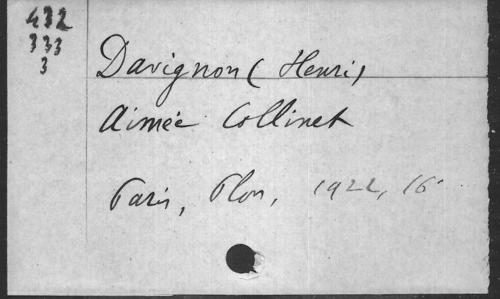 432
333
3
Davignon (Henri)
Aimée Collinet
Paris, Plon, 1922, 16°